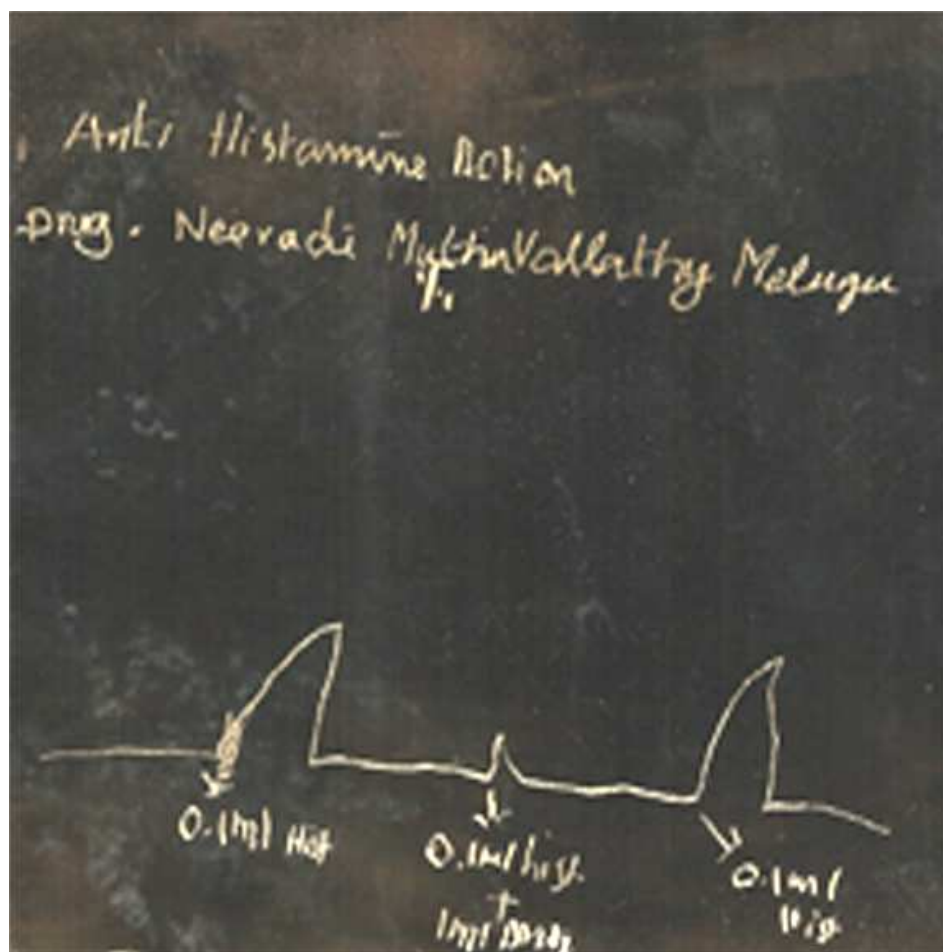 Anti Histamine Action
Drug. Neeradi MuthuVallathy Melugu
0.1ml Hist
0.1ml hist.
+
1ml Drug
0.1ml
His